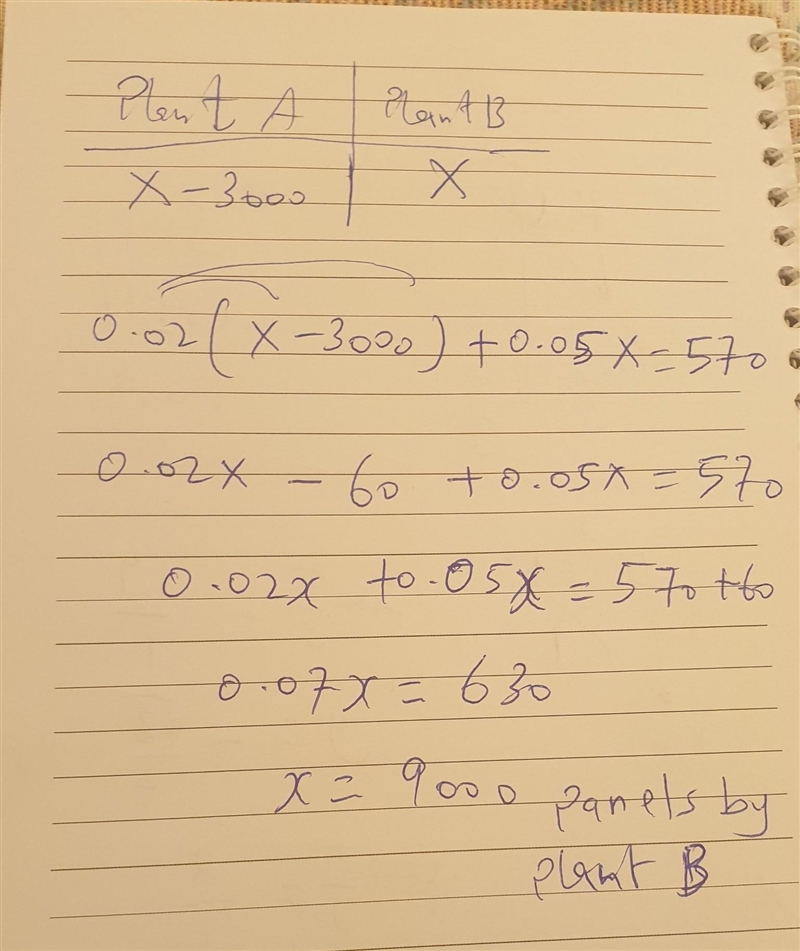 Plant A Plant B
X - 3000 X
0.02(X - 3000) + 0.05X = 570
0.02X - 60 + 0.05X = 570
0.02x + 0.05x = 570 + 60
0.07x = 630
x = 9000 panels by
plant B